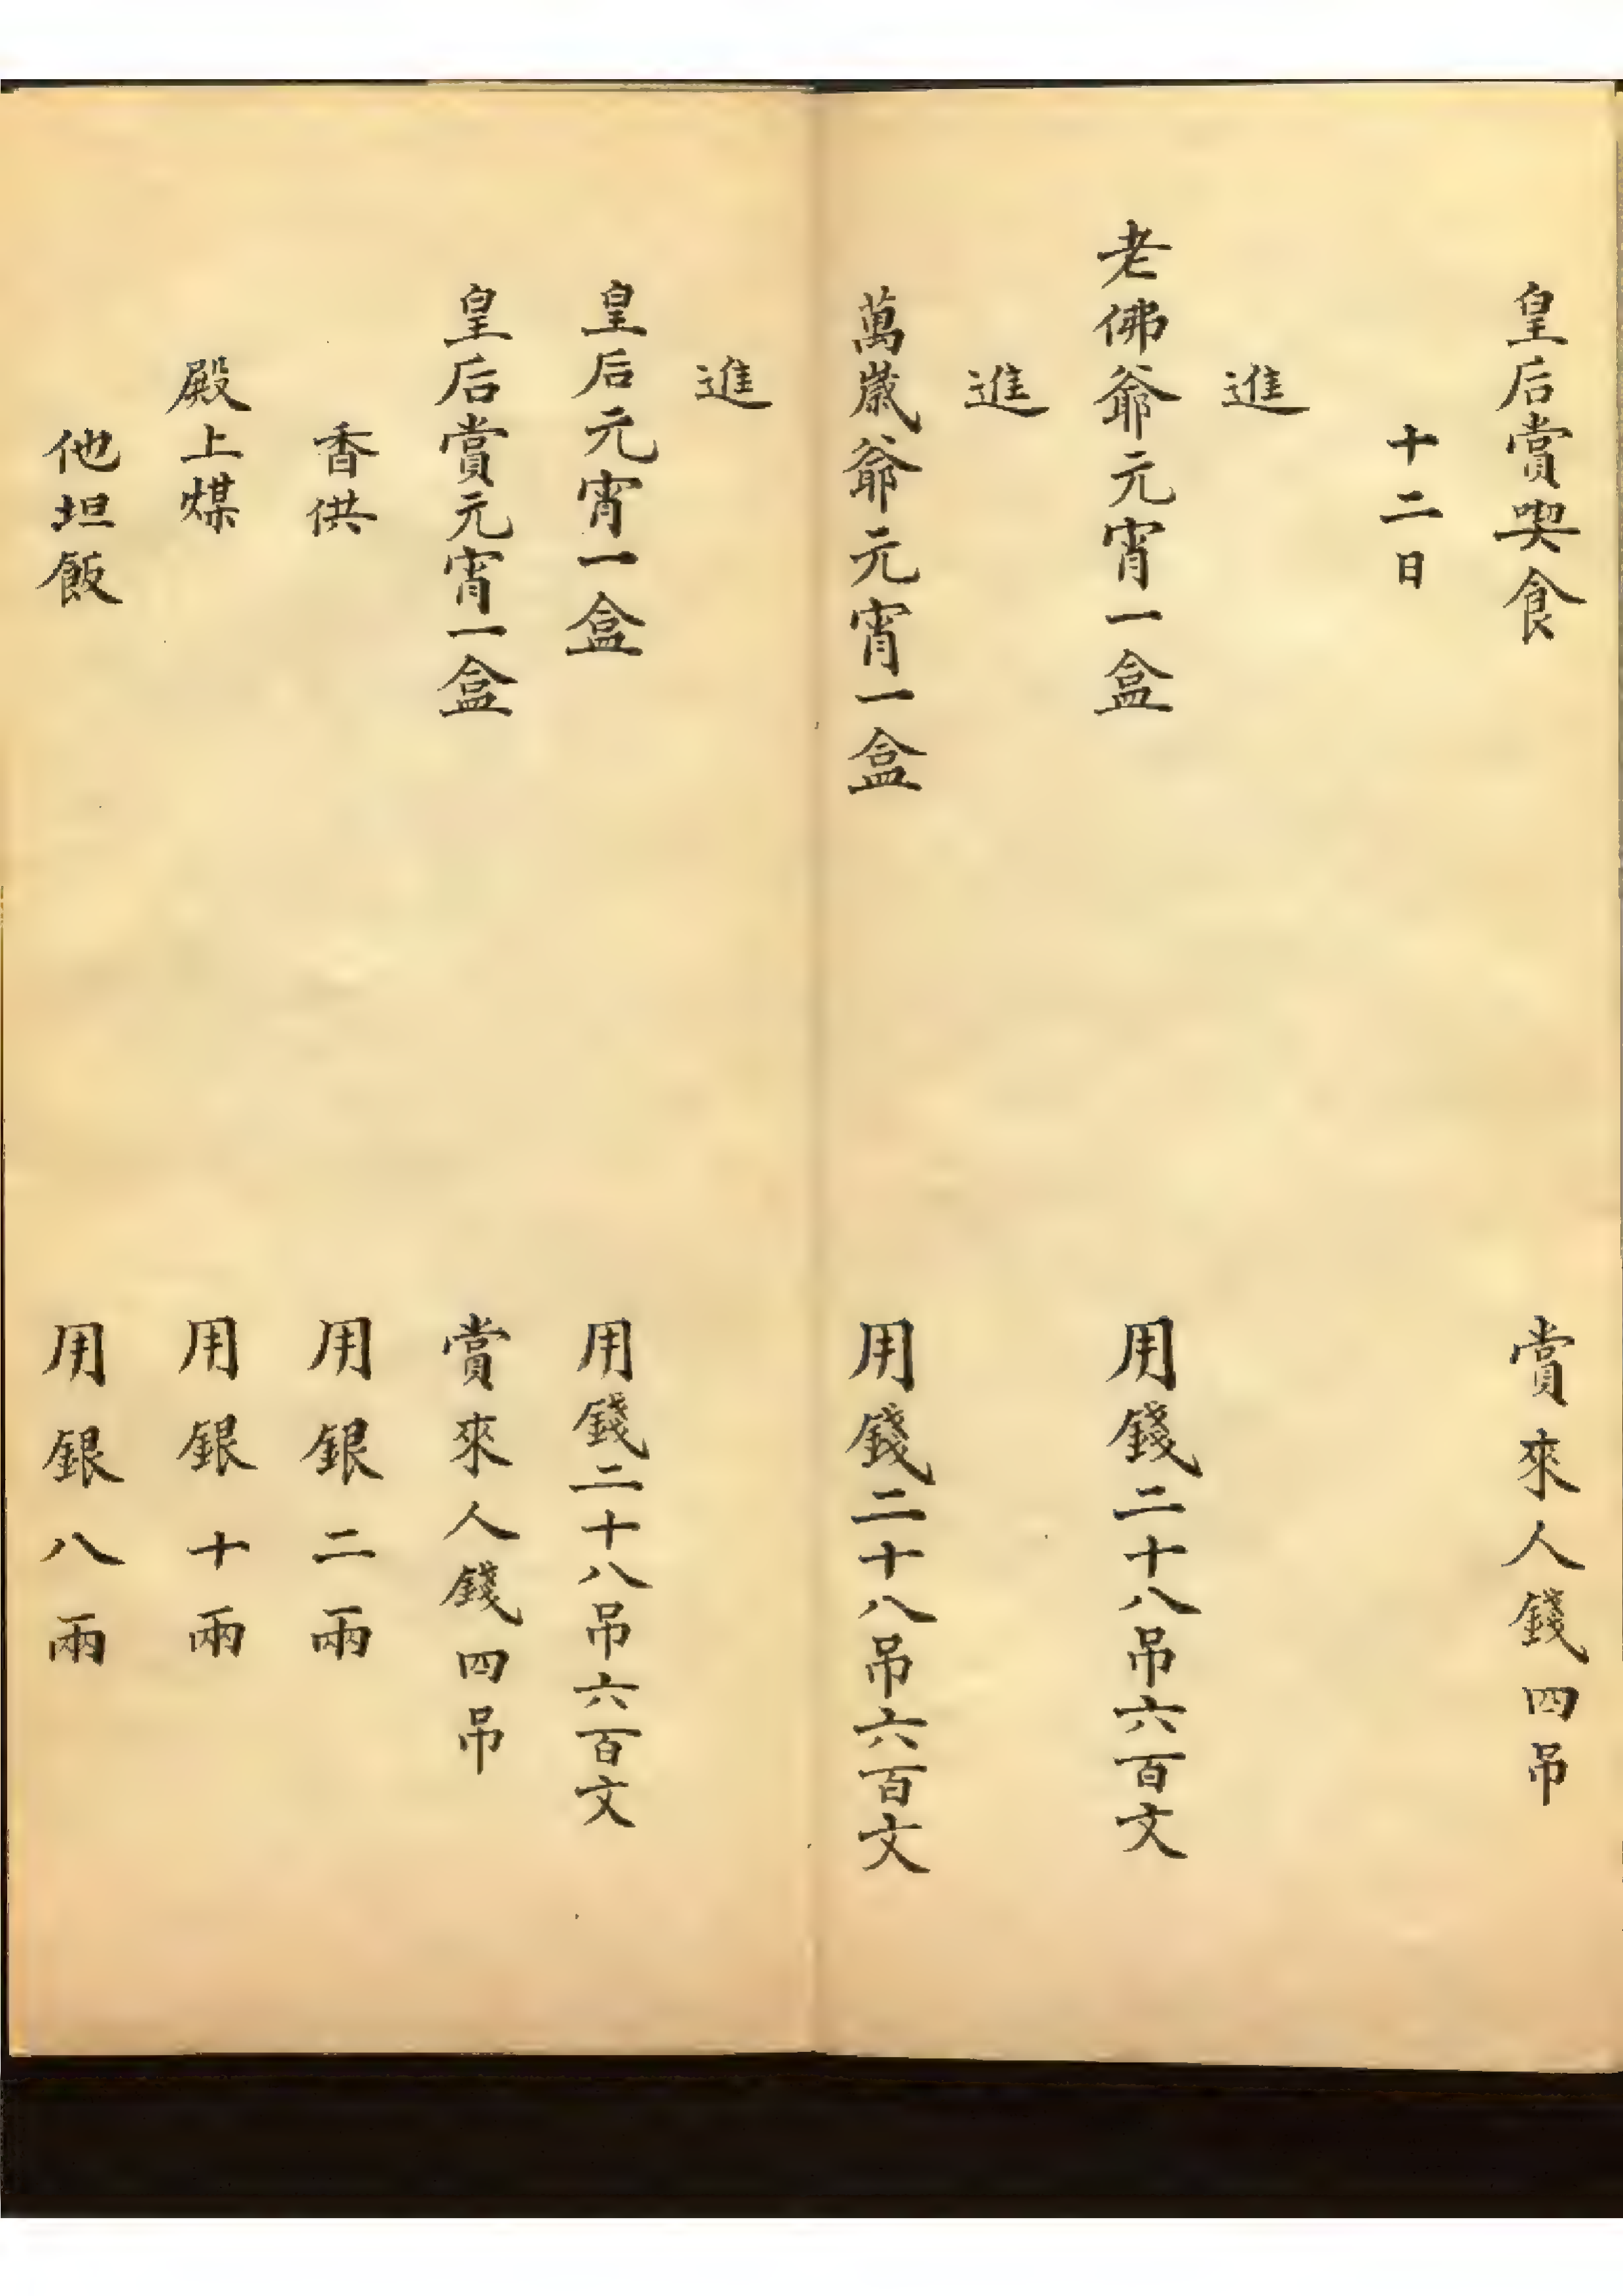 皇后賞喫食　賞來人錢四吊
十二日
進
老佛爺元宵一盒　用錢二十八吊六百文
進
萬歲爺元宵一盒　用錢二十八吊六百文
進
皇后元宵一盒　用錢二十八吊六百文
皇后賞元宵一盒　賞來人錢四吊
香供　用銀二兩
殿上煤　用銀十兩
他坦飯　用銀八兩